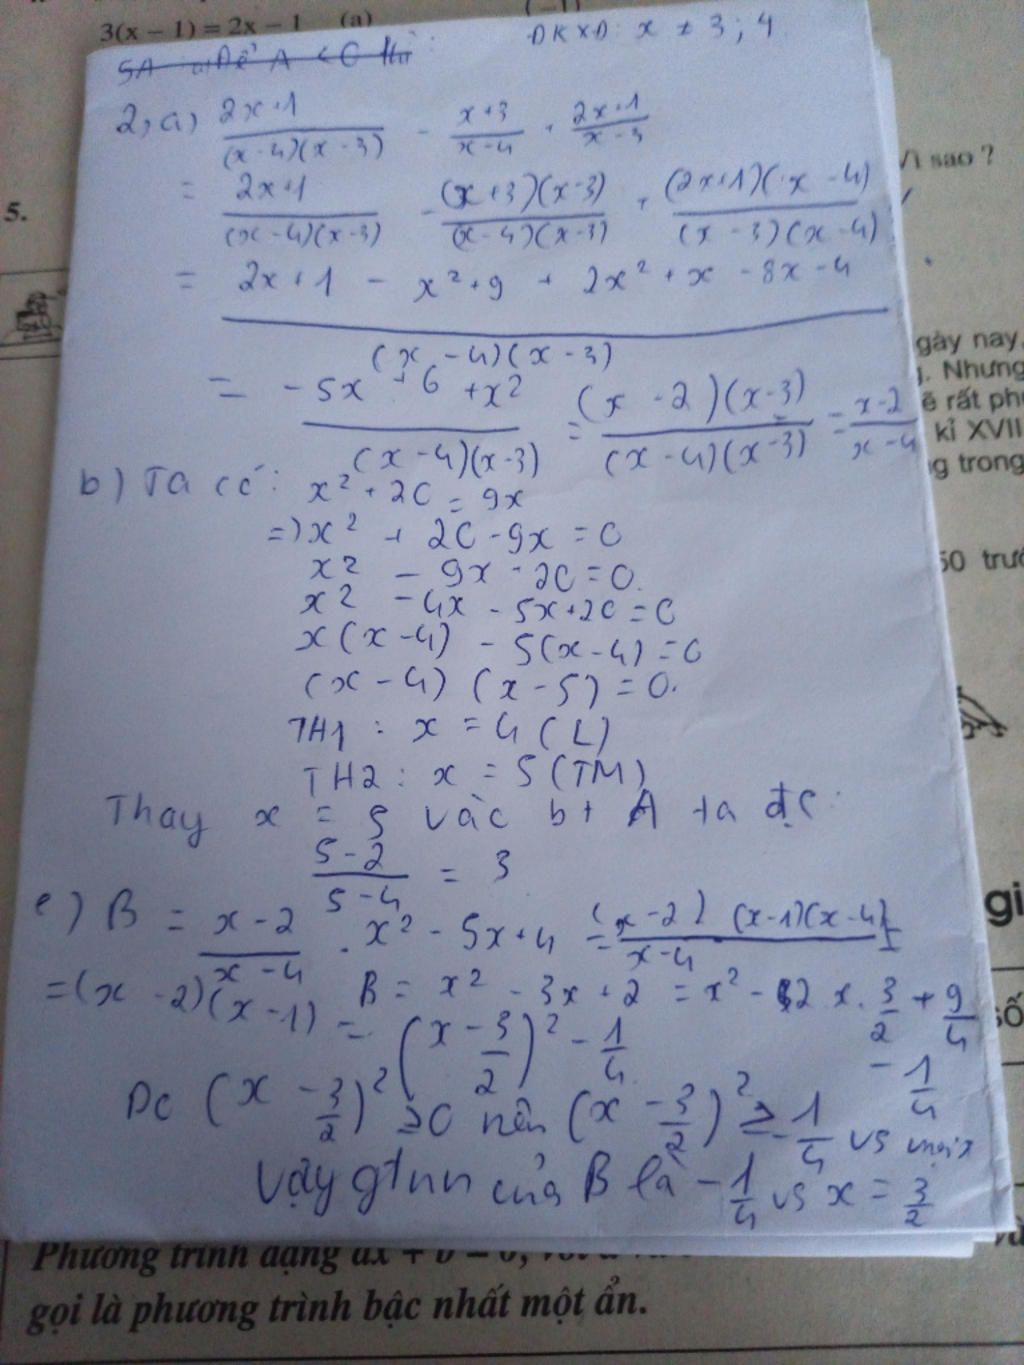 3(x − 1) = 2x − 1 (a)
(−1)
ĐKXĐ: x ≠ 3 ; 4
5A a) Để A < 0 thì :
2, a) \frac{2x+1}{(x-4)(x-3)} - \frac{x+3}{x-4} + \frac{2x+1}{x-3}
= \frac{2x+1}{(x-4)(x-3)} - \frac{(x+3)(x-3)}{(x-4)(x-3)} + \frac{(2x+1)(x-4)}{(x-3)(x-4)}
= \frac{2x+1 - x^2+9 + 2x^2+x-8x-4}{(x-4)(x-3)}
= \frac{-5x+6+x^2}{(x-4)(x-3)} = \frac{(x-2)(x-3)}{(x-4)(x-3)} = \frac{x-2}{x-4}
b) Ta có: x² + 20 = 9x
=) x² + 20 - 9x = 0
x² - 9x - 20 = 0.
x² - 4x - 5x + 20 = 0
x(x-4) - 5(x-4) = 0
(x-4) (x-5) = 0.
TH1 : x = 4 (L)
TH2 : x = 5 (TM)
Thay x = 5 vào bt A ta đc:
\frac{5-2}{5-4} = 3
c) B = \frac{x-2}{x-4} . x² - 5x + 4 = \frac{(x-2) (x-1)(x-4)}{x-4} =
= (x-2)(x-1) B = x² - 3x + 2 = x² - 2 x . \frac{3}{2} + \frac{9}{4} - \frac{1}{4}
= (x - \frac{3}{2})² - \frac{1}{4}
Do (x - \frac{3}{2})² ≥ 0 nên (x - \frac{3}{2})² ≥ - \frac{1}{4} vs mọi x
Vậy gtnn của B là - \frac{1}{4} vs x = \frac{3}{2}
5.
Vì sao ?
gày nay,
. Nhưng
ẽ rất phu
kỉ XVII
g trong
50 trướ
gi
số
Phương trình dạng ax + b = 0, với a
gọi là phương trình bậc nhất một ẩn.